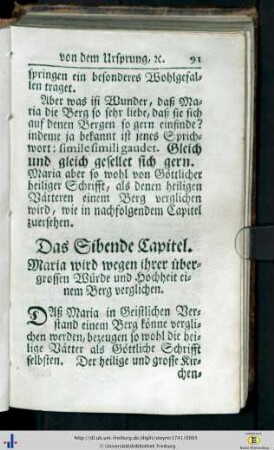 von dem Ursprung, ꝛc. 91
springen ein besonderes Wohlgefal-
len traget.
Aber was ist Wunder, daß Ma-
ria die Berg so sehr liebe, daß sie sich
auf denen Bergen so gern einfinde?
indeme ja bekannt ist jenes Sprich-
wort: simile simili gaudet. Gleich
und gleich gesellet sich gern.
Maria aber so wohl von Göttlicher
heiliger Schrifft, als denen heiligen
Vätteren einem Berg verglichen
wird, wie in nachfolgendem Capitel
zuersehen.
Das Sibende Capitel.
Maria wird wegen ihrer über-
grossen Würde und Hochheit ei-
nem Berg verglichen.
Daß Maria in Geistlichen Ver-
stand einem Berg könne vergli-
chen werden, bezeugen so wohl die hei-
lige Vätter als Göttliche Schrifft
selbsten. Der heilige und grosse Kir-
chen-
http://dl.ub.uni-freiburg.de/diglit/stayrer1741/0093
© Universitätsbibliothek Freiburg